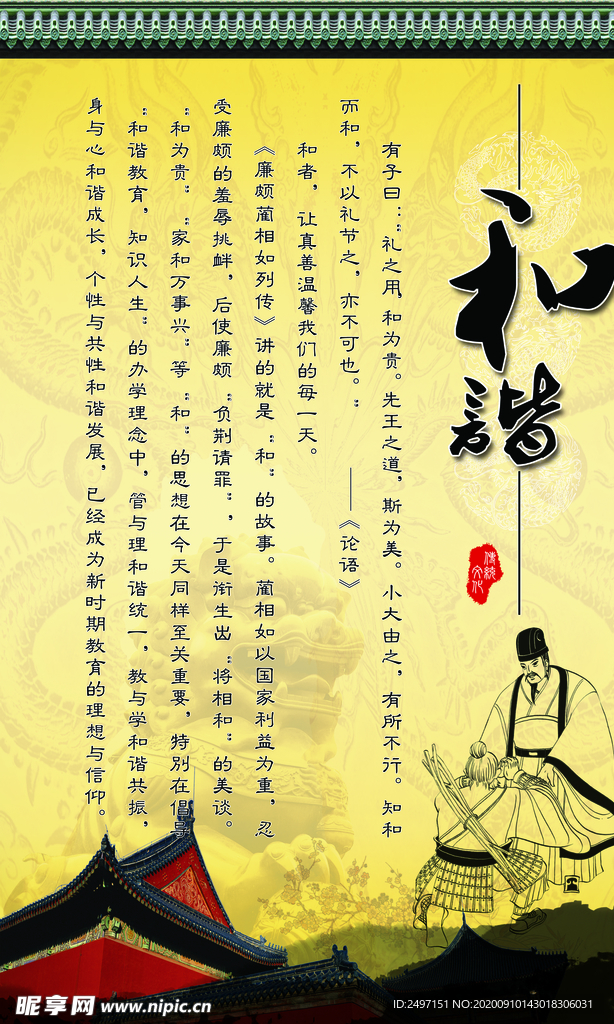 和
諧
傳統
文化
有子曰：“礼之用，和为贵。先王之道，斯为美。小大由之，有所不行。知和
而和，不以礼节之，亦不可也。”　——《论语》
和者，让真善温馨我们的每一天。
《廉颇蔺相如列传》讲的就是“和”的故事。蔺相如以国家利益为重，忍
受廉颇的羞辱挑衅，后使廉颇“负荆请罪”，于是衔生出“将相和”的美谈。
“和为贵”“家和万事兴”等“和”的思想在今天同样至关重要，特别在倡导
“和谐教育，知识人生”的办学理念中，管与理和谐统一，教与学和谐共振，
身与心和谐成长，个性与共性和谐发展，已经成为新时期教育的理想与信仰。
昵享网 www.nipic.cn
ID:2497151 NO:20200910143018306031